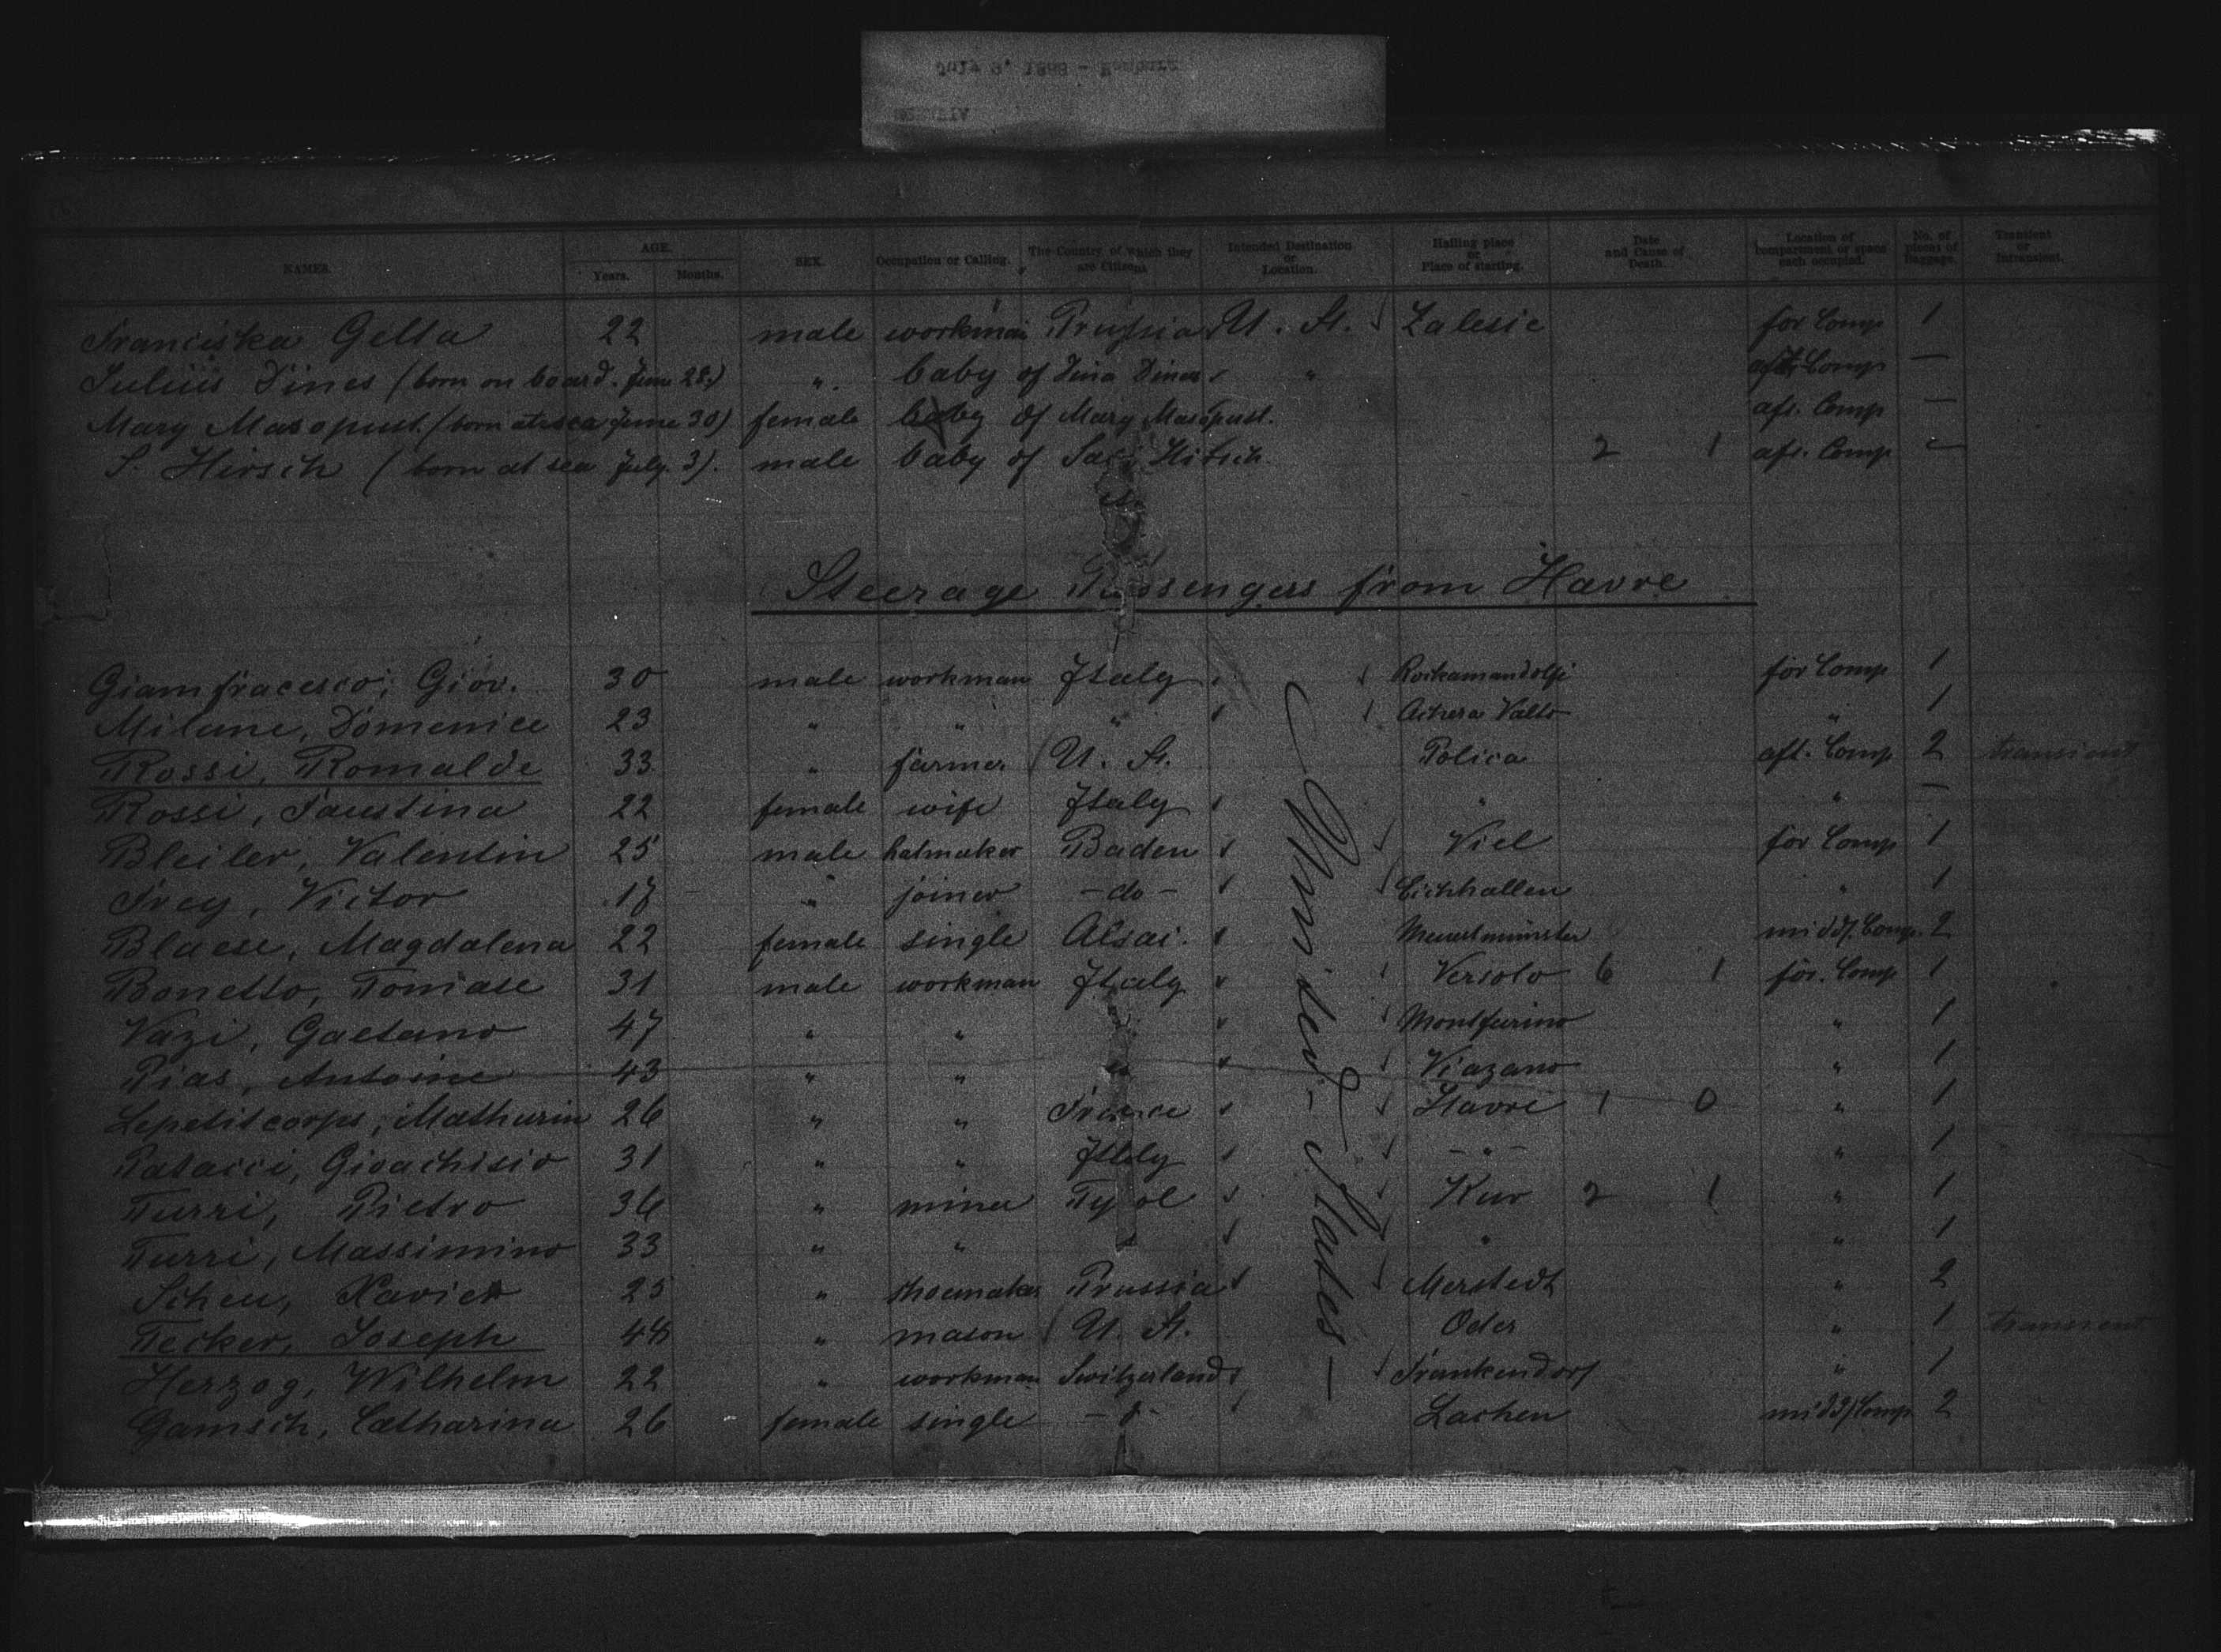 NAMES. AGE. Years. Months. SEX. Occupation or Calling. The Country of which they are Citizens Intended Destination or Location. Hailing place or Place of starting. Date and Cause of Death. Location of compartment or space each occupied. No. of pieces of Baggage. Transient or Intransient.
Franciska Gella 22 male workman Prussia U. St. Zalesie for Comp 1
Julius Dines (born on board. June 28.) " baby of Dina Dines " aft. Comp —
Mary Masopust. (born at sea June 30) female baby of Mary Masopust. aft. Comp —
S. Hirsch (born at sea July. 3). male baby of Hirsch 2 1 aft. Comp —
Steerage Passengers from Havre
Giamfracesco, Giov. 30 male workman Italy Rockamandolfi for Comp 1
Milane, Domenice 23 " " " " 1
Rossi, Romalde 33 " farmer U. St. Polica aft. Comp 2 transient
Rossi, Faustina 22 female wife Italy " " —
Bleiler, Valentin 25 male hatmaker Baden Viel for Comp 1
Frey, Victor 17 " joiner - do - Eichhallen " 1
Blaese, Magdalena 22 female single Alsac. middl. Comp. 2
Bonetto, Tomase 31 male workman Italy Versolo 6 1 for. Comp 1
Vazi, Gaetano 47 " " Montfurino " 1
Pias, Antoine 43 " " Viazano " 1
Lepetitcorps, Mathurin 26 " " France Havre 1 0 " 1
Patacci, Gioachisio 31 " " Italy - " - " 1
Turri, Pietro 36 " miner Tyrol Kur 2 1 " 1
Turri, Massimino 33 " " " " 1
Scheu, Xavier 25 " shoemaker Prussia Merstedt " 2
Tecker, Joseph 44 " mason U. St. Oder " 1 transient
Herzog, Wilhelm 22 " workman Switzerland Frankendorf " 1
Gamsch, Catharina 26 female single Lachen middl Comp 2
United States